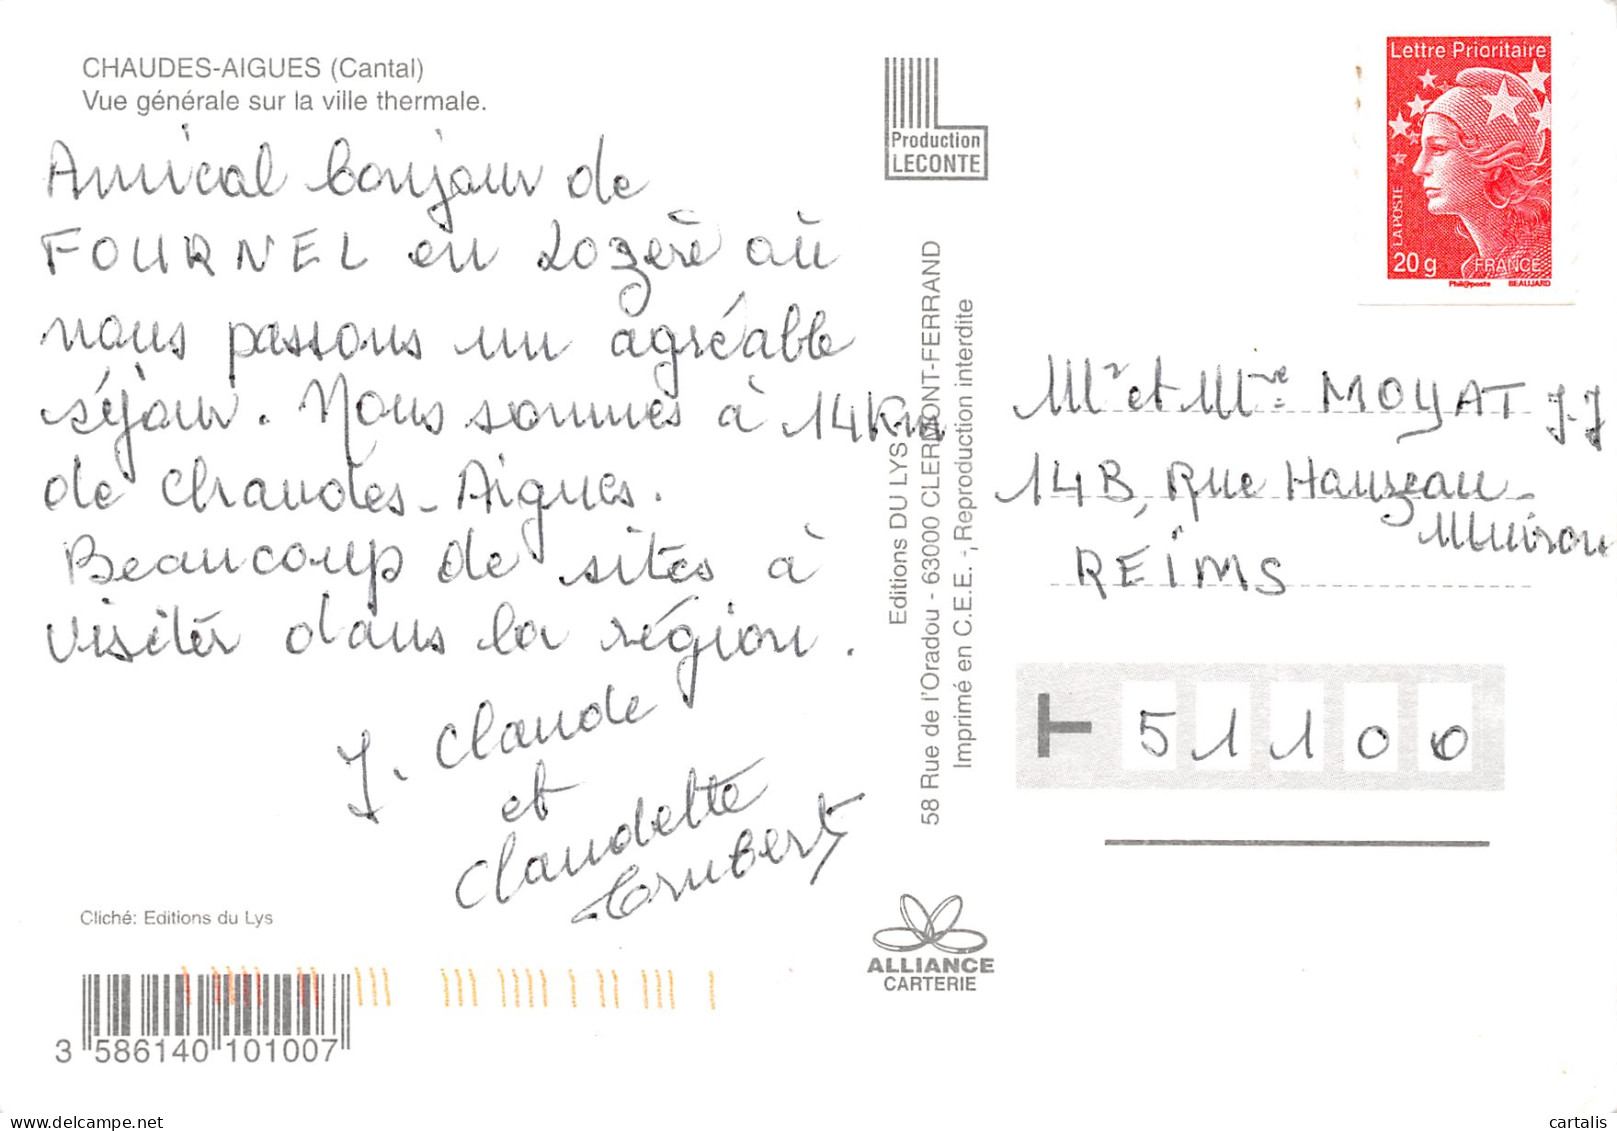 CHAUDES-AIGUES (Cantal)
Vue générale sur la ville thermale.
Amical bonjour de
FOURNEL en Lozère où
nous passons un agréable
séjour. Nous sommes à 14Km
de Chaudes-Aigues.
Beaucoup de sites à
visiter dans la région.
J. Claude
et
Claudette
Cliché: Editions du Lys
3 586140 101007
Production
LECONTE
Editions DU LYS
58 Rue de l'Oradou - 63000 CLERMONT-FERRAND
Imprimé en C.E.E. - Reproduction interdite
ALLIANCE
CARTERIE
Lettre Prioritaire
LA POSTE
20 g FRANCE
Phil@poste BEAUJARD
Mr et Mme MOYAT J.J
14B, Rue Hauzeau-
Muiron
REIMS
51100
cartalis